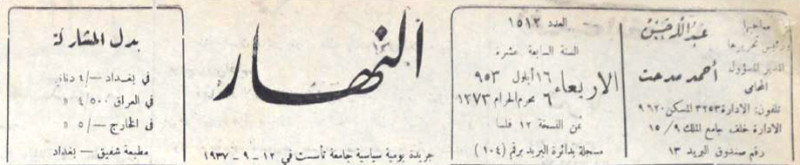 صاحبها
ورئيس تحريرها
عبد الله حسن
المدير المسؤول
أحمد مدحت
المحامي
تلفون : الادارة ٣٢٥٣ المسكن ٩٦٢٠
الادارة خلف جامع الملك ٩ / ١٥
رقم صندوق البريد ١٣
العدد ١٥١٢
السنة السابعة عشرة
الاربعاء
١٦ أيلول ٩٥٣
٦ محرم الحرام ١٣٧٣
ثمن النسخة ١٢ فلسا
مسجلة بدائرة البريد برقم (١٠٤)
النهار
جريدة يومية سياسية جامعة تأسست في ١٢ - ٩ - ١٩٣٧
بدل المشاركة
في بغداد —/٤ دنانير
في العراق ٤/٥٠٠ »
في الخارج —/٥ »
مطبعة شفيق - بغداد